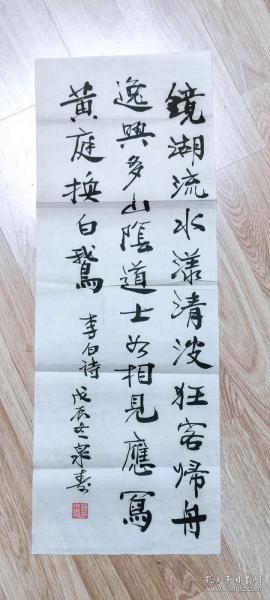 鏡湖流水漾清波狂客歸舟
逸興多山陰道士如相見應寫
黃庭換白鵝
李白詩
戊辰冬泉壽
孔夫子旧书网